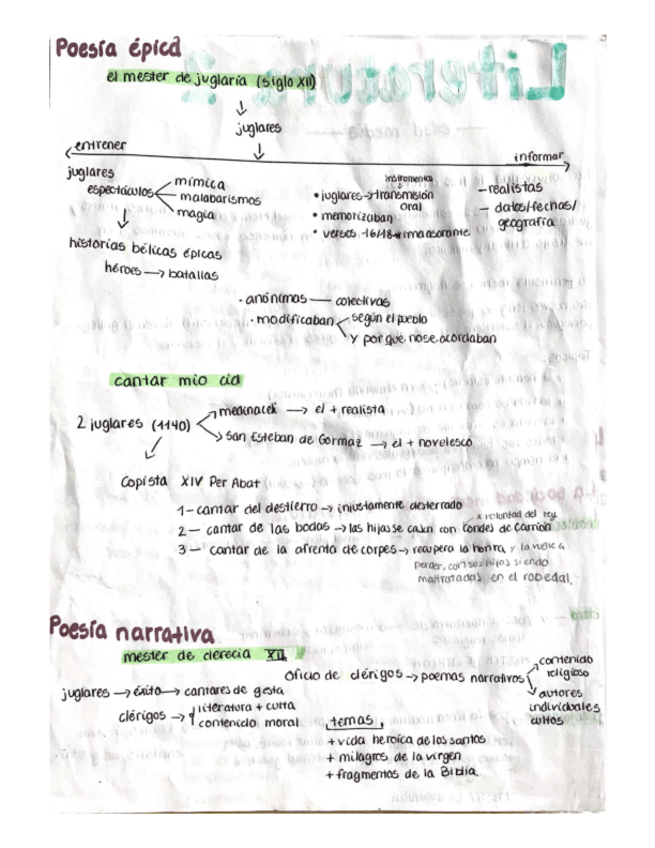 Poesía épica
el mester de juglaria (siglo XII)
juglares
entrener
informar
juglares
espectáculos
mímica
malabarismos
magia
historias bélicas épicas
héroes → batallas
instrumentos
• juglares → transmisión
oral
• memorizaban
• versos 16/18 → rima asonante
- realistas
- datos/fechas/
geografía
· anónimas — colectivas
· modificaban
según el pueblo
y por que no se acordaban
cantar mio cid
2 juglares (1140)
medinaceli → el + realista
san Esteban de Gormaz → el + novelesco
Copista XIV Per Abat
1- cantar del destierro → injustamente desterrado
x voluntad del rey
2- cantar de las bodas → las hijas se casan con condes de Carrión
3- cantar de la afrenta de corpes → recupera la honra, y la vuelve a
perder, con sus hijas siendo
maltratadas en el robedal.
Poesía narrativa
mester de clerecia XII
Oficio de clérigos → poemas narrativos
contenido
religioso
autores
individuales
cultos
juglares → éxito → cantares de gesta
clérigos →
literatura + culta
contenido moral
temas
+ vida heroica de los santos
+ milagros de la virgen
+ fragmentos de la Biblia.